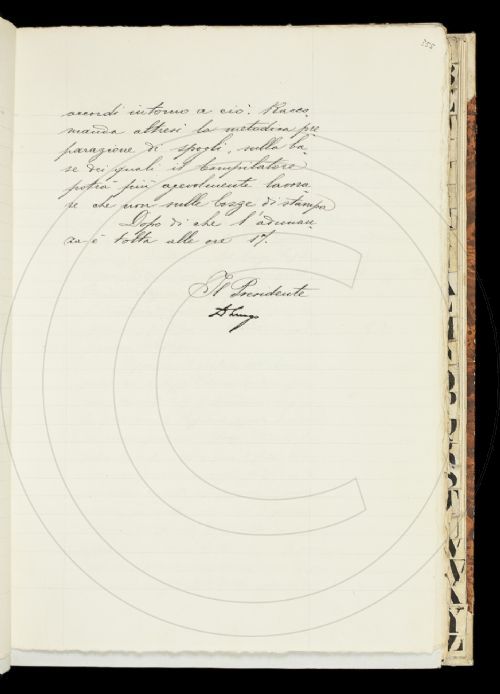 355
accordi intorno a ciò. Racco
manda altresì la metodica pre
parazione di spogli, sulla ba
se dei quali il Compilatore
potrà più agevolmente lavora
re che non sulle bozze di stampa
Dopo di che l'adunan
za è tolta alle ore 17.
Il Presidente